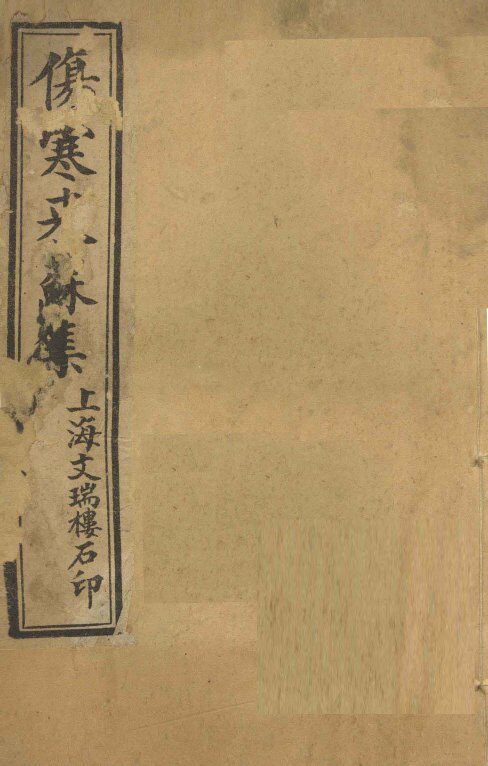 傷寒來蘇集
上海文瑞樓石印